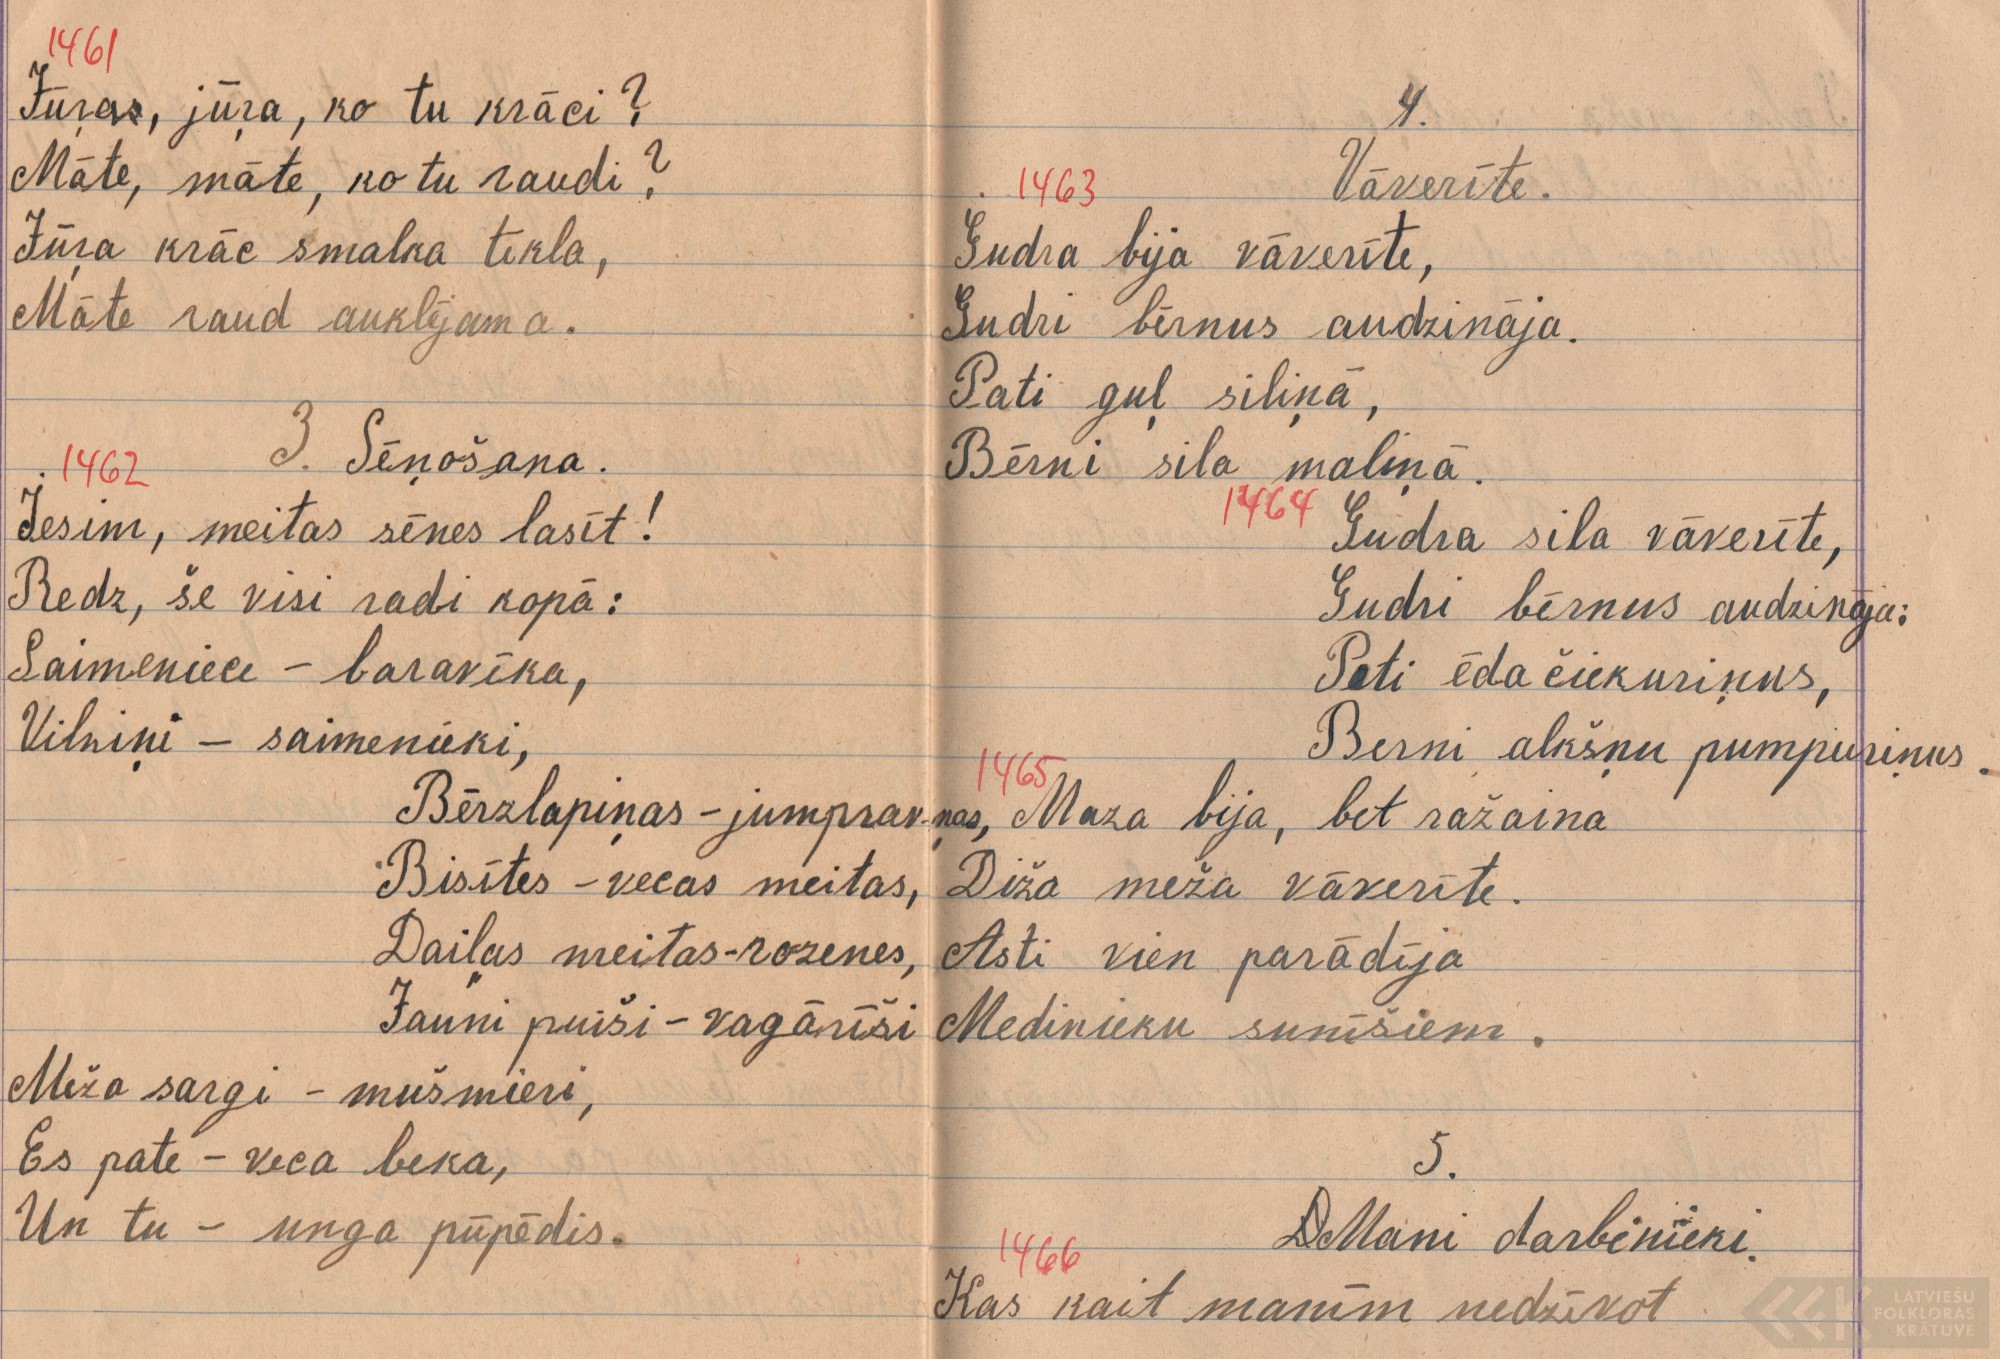 1461
Jūŗas, jūŗa, ko tu krāci?
Māte, māte, ko tu raudi?
Jūŗa krāc smalka tēkla,
Māte raud auklējama.
1462
3. Sēņošana.
Iesim, meitas sēnes lasīt!
Redz, še visi radi kopā:
Saimeniece - baravīka,
Vilniņi - saimenieki,
Bērzlapiņas - jumprav-ņas,
Bisītes - vecas meitas,
Daiļas meitas - rozenes,
Jauni puiši - vagārīši
Meža sargi - mušmieri,
Es pate - veca beka,
Un tu - unga pūpēdis.
4.
Vāverīte.
1463
Gudra bija vāverīte,
Gudri bērnus audzināja.
Pati guļ siliņā,
Bērni sila maliņā.
1464
Gudra sila vāverīte,
Gudri bērnus audzināja:
Pati ēda čiekuriņus,
Berni alkšņu pumpuriņus.
1465
Maza bija, bet ražaina
Diža meža vāverīte.
Asti vien parādīja
Medinieku sunīšiem.
5.
Mani darbinieki.
1466
Kas kait manīm nedzīvot
LATVIEŠU
FOLKLORAS
KRĀTUVE